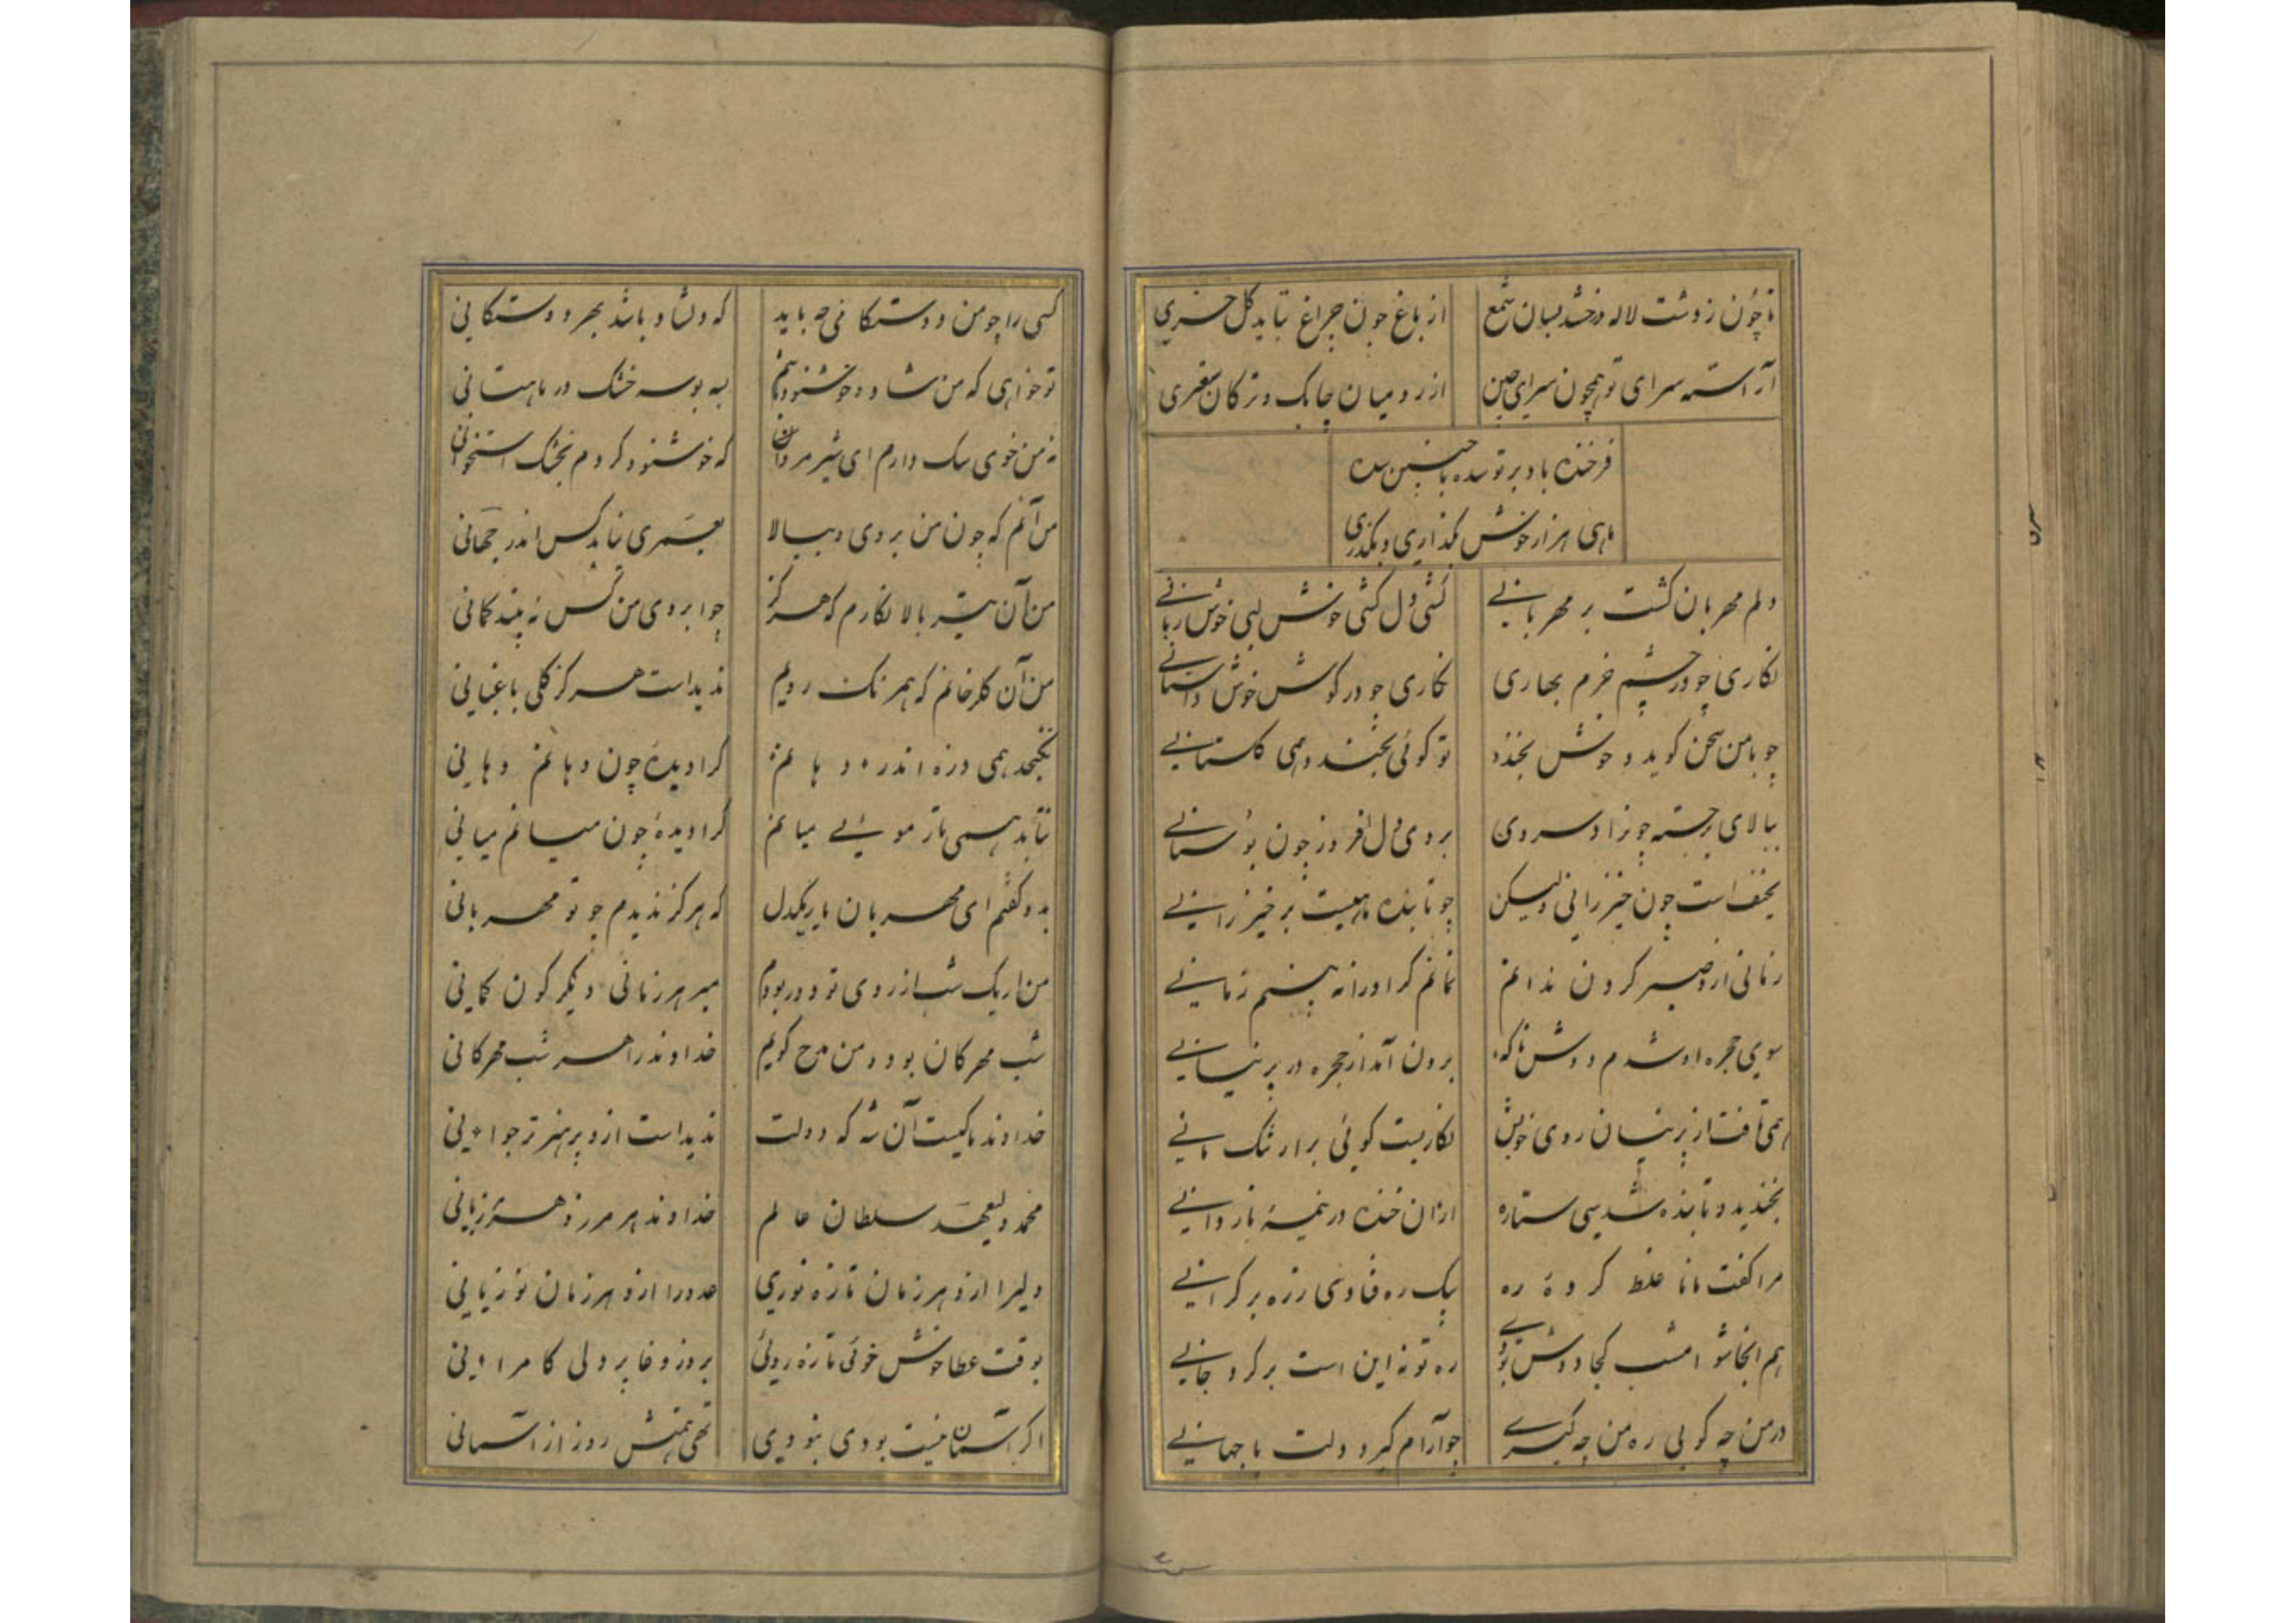 تا چون ز دشت لاله درخشد بسان شمع
از باغ چون چراغ بتابد گل خیری
آراسته سرای تو همچون سرای چین
از رومیان چابک و ترکان سعتری
فرخنده باد بر تو سده با چنین سده
ماهی هزار خوش گذاری و بگذری
دلم مهربان گشت بر مهربانی
کشی دل کشی خوش لبی خوش زبانی
نگاری چو در چشم خرم بهاری
نگاری چو در گوش خوش داستانی
چو با من سخن گوید و خوش بخندد
تو گوئی بخندد همی گلستانی
ببالای بر جسته چو زاد سروی
بروی دل افروز چون بوستانی
نحیف است چون خیزرانی ولیکن
چو تابنده ماهیست بر خیزرانی
زمانی ازو صبر کردن ندانم
نمانم گر او را نه بینم زمانی
سوی حجره او شدم دوش ناگه
برون آمد از حجره در پرنیانی
همی تافت از پرنیان روی خوبش
نگاریست گوئی بر ارتنگ مانی
بخندید و تابنده شد سی ستاره
ازان خنده در نیمهٔ ناردانی
مرا گفت مانا غلط کردهٔ ره
یک ره فتادی زره بر کرانی
هم انجا شو امشب کجا دوش بودی
ره تو نه این است برگرد جانی
در من چه کوبی ره من چه گیری
چو آرام گیرد دلت با جهانی
کسی را چو من دوستگانی چه باید
که دلشاد باشد بهر دوستگانی
تو خواهی که من شاد و خوشنود باشم
به بوسه خشک در ماهیتانی
نه من خوی سک دارم ای شیر مردان
که خوشنود گردم بخشک استخوانی
من آنم که چون من بروی و ببالا
بعمری نیاید کس اندر جهانی
من آن تیر بالا نگارم که هرگز
چو ابروی من کس نه بیند کمانی
من آن گلرخانم که همرنگ رویم
ندیداست هرگز گلی باغبانی
نگنجد همی ذره اندر دهانم
کرا دیدهٔ چون دهانم دهانی
نتابد همی تار موئی میانم
کرا دیدهٔ چون میانم میانی
بدو گفتم ای مهربان یار یکدل
که هرگز ندیدم چو تو مهربانی
من ار یک شب از روی تو دور بودم
مبر هر زمانی دیگرگون گمانی
شب مهرگان بود و من مدح گویم
خداوند را هر شب مهرگانی
خداوند ما کیست آن شه که دولت
ندیداست ازو پر هنر تر جوانی
محمد ولیعهد سلطان عالم
خداوند هر مرز و هر مرزبانی
ولی را ازو هر زمان تازه نوری
عدو را ازو هر زمان نو زیانی
بوقت عطا خوش خوئی تازه روئی
بروز وغا پر دلی کامرانی
اگر آسمان نیست بودی نبودی
تهی همتش روز از آسمانی